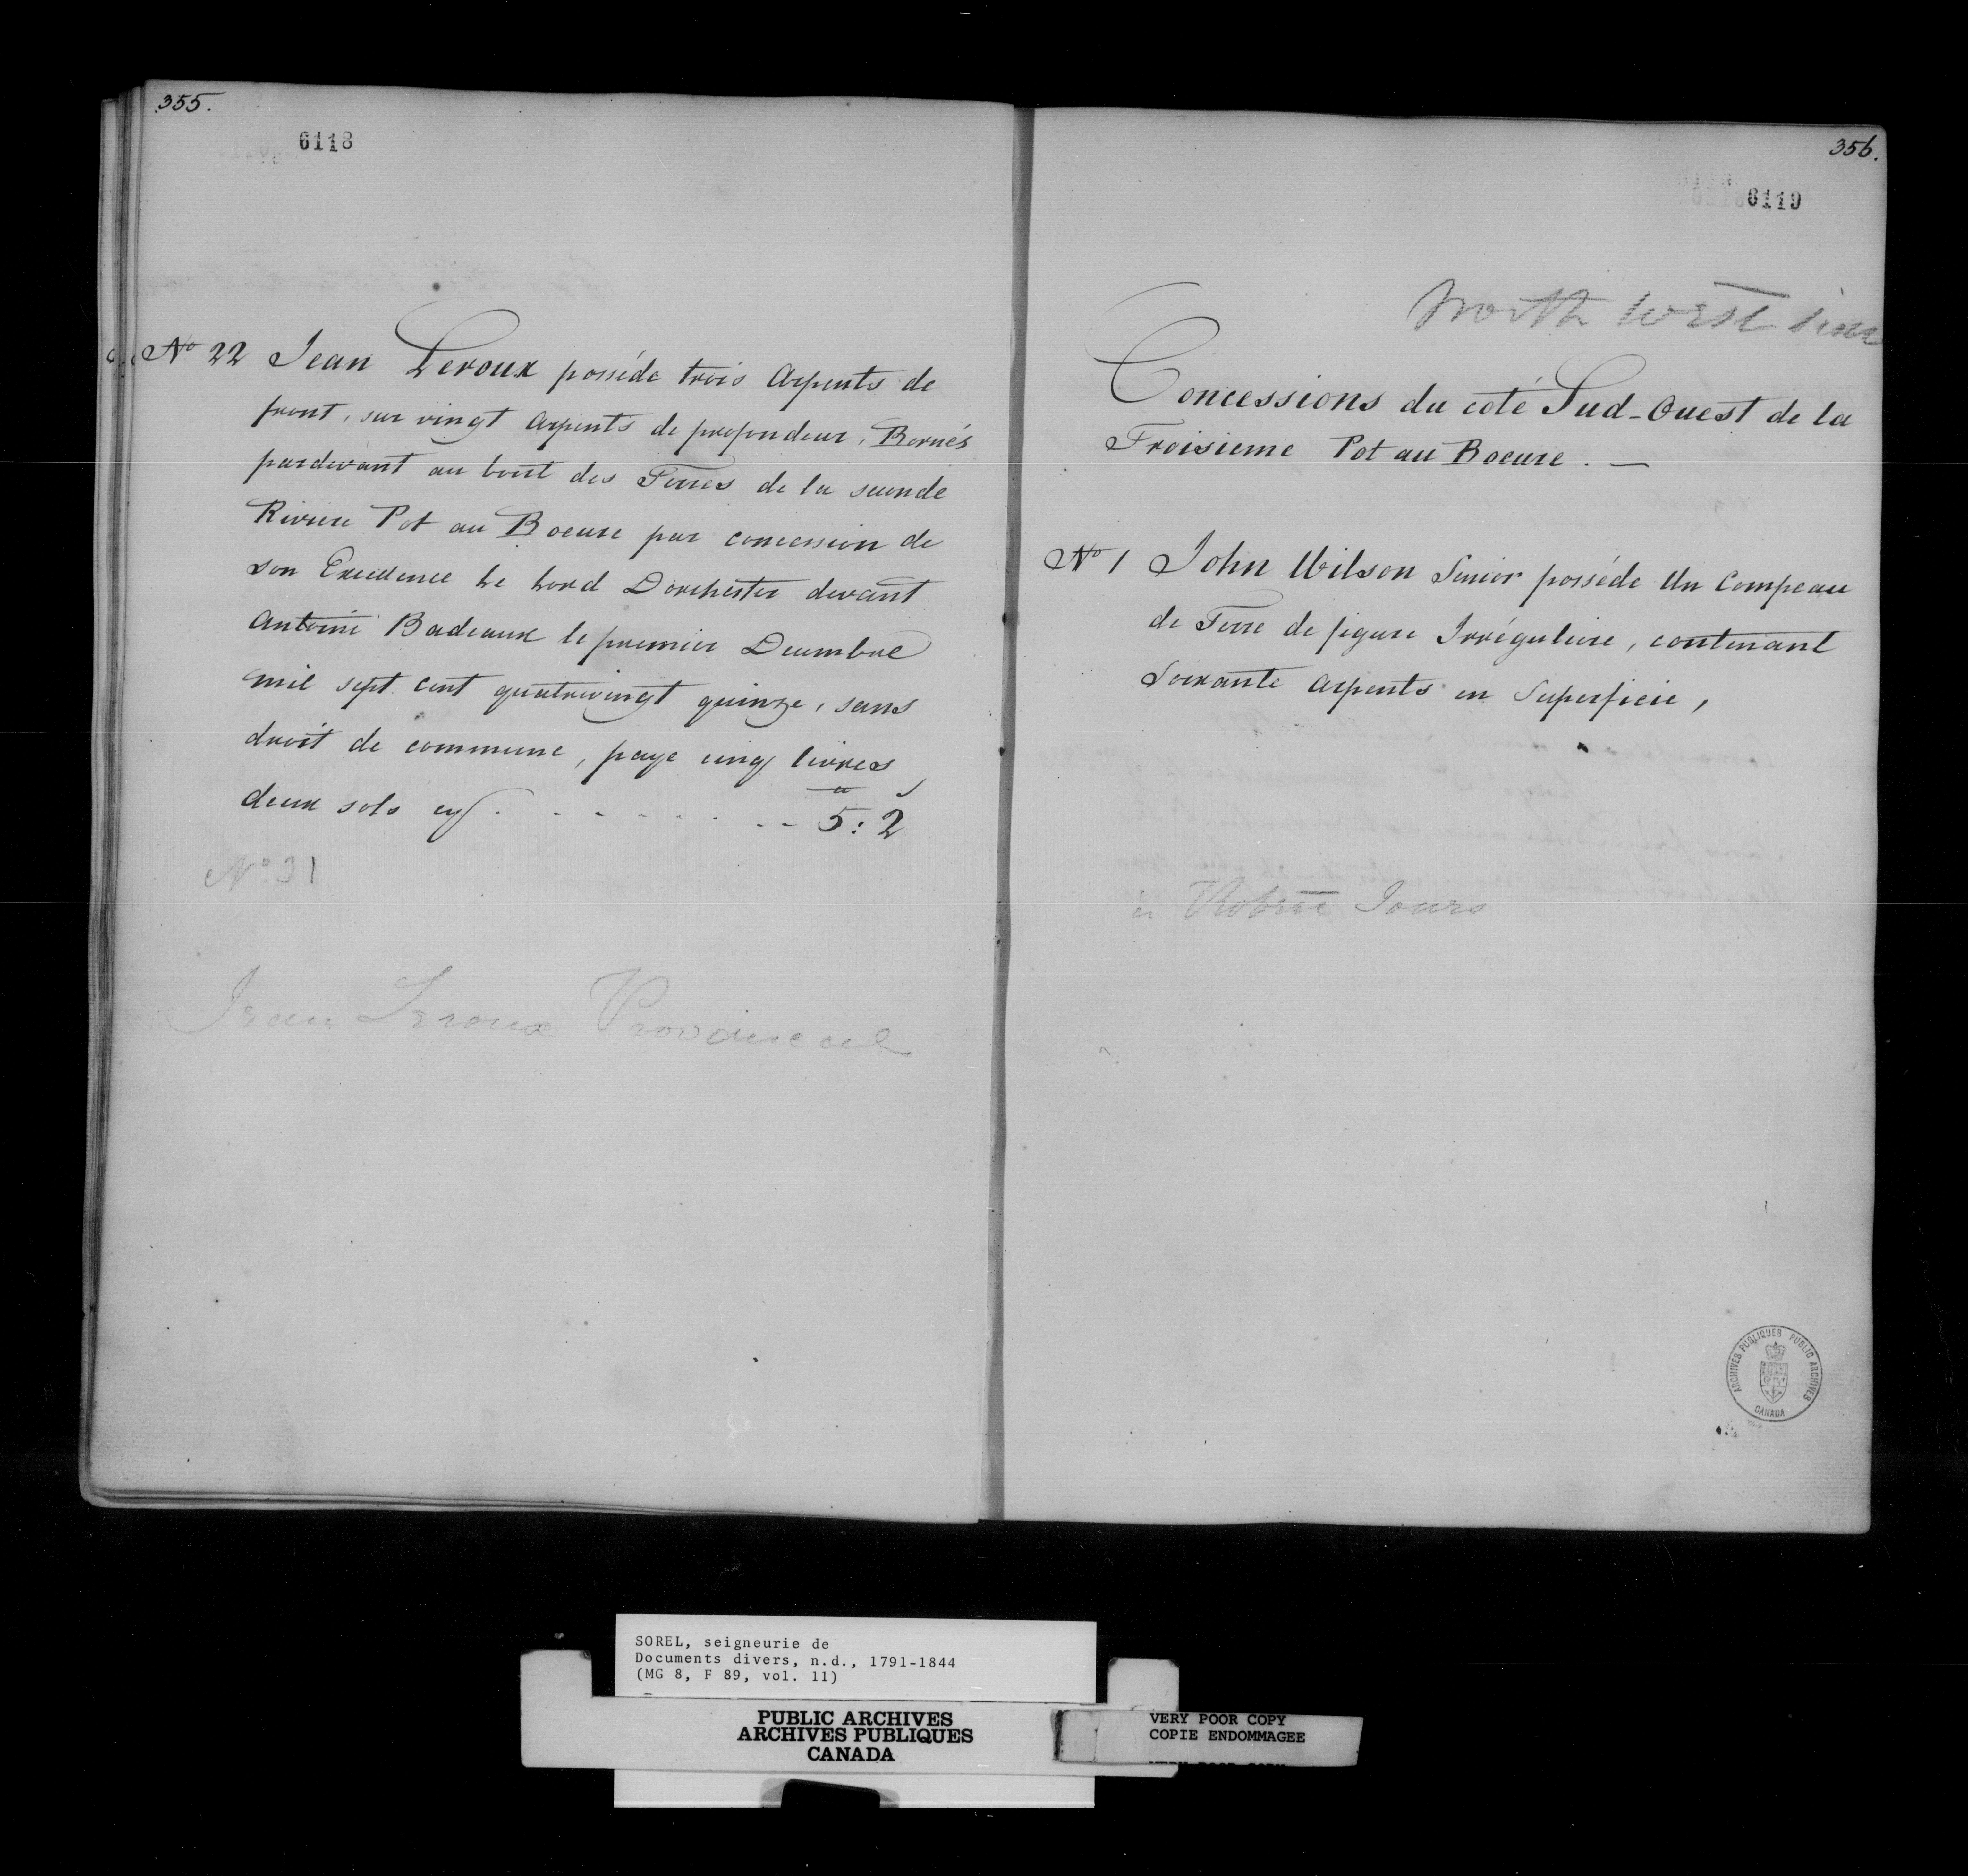 355.
6118
No 22 Jean Leroux posséde trois Arpents de
front, sur vingt Arpents de profondeur, Bornés
pardevant au bout des Terres de la seconde
Riviere Pot au Boeure par concession de
son Excellence Le Lord Dorchester devant
Antoine Badeaux le premier Decembre
mil sept cent quatrevingt quinze, sans
droit de commune, paye cinq livres
deux sols cy . . . . . . . . 5: 2
No 31
Jean Leroux Provencal
356.
6119
North West
Concessions du coté Sud-Ouest de la
Troisieme Pot au Boeure. —
No 1 John Wilson Senior posséde Un Compeau
de Terre de figure Irréguliere, contenant
Soixante Arpents en Superficie,
à Jours
ARCHIVES PUBLIQUES PUBLIC ARCHIVES
CANADA
SOREL, seigneurie de
Documents divers, n.d., 1791-1844
(MG 8, F 89, vol. 11)
PUBLIC ARCHIVES
ARCHIVES PUBLIQUES
CANADA
VERY POOR COPY
COPIE ENDOMMAGEE
VERY POOR COPY